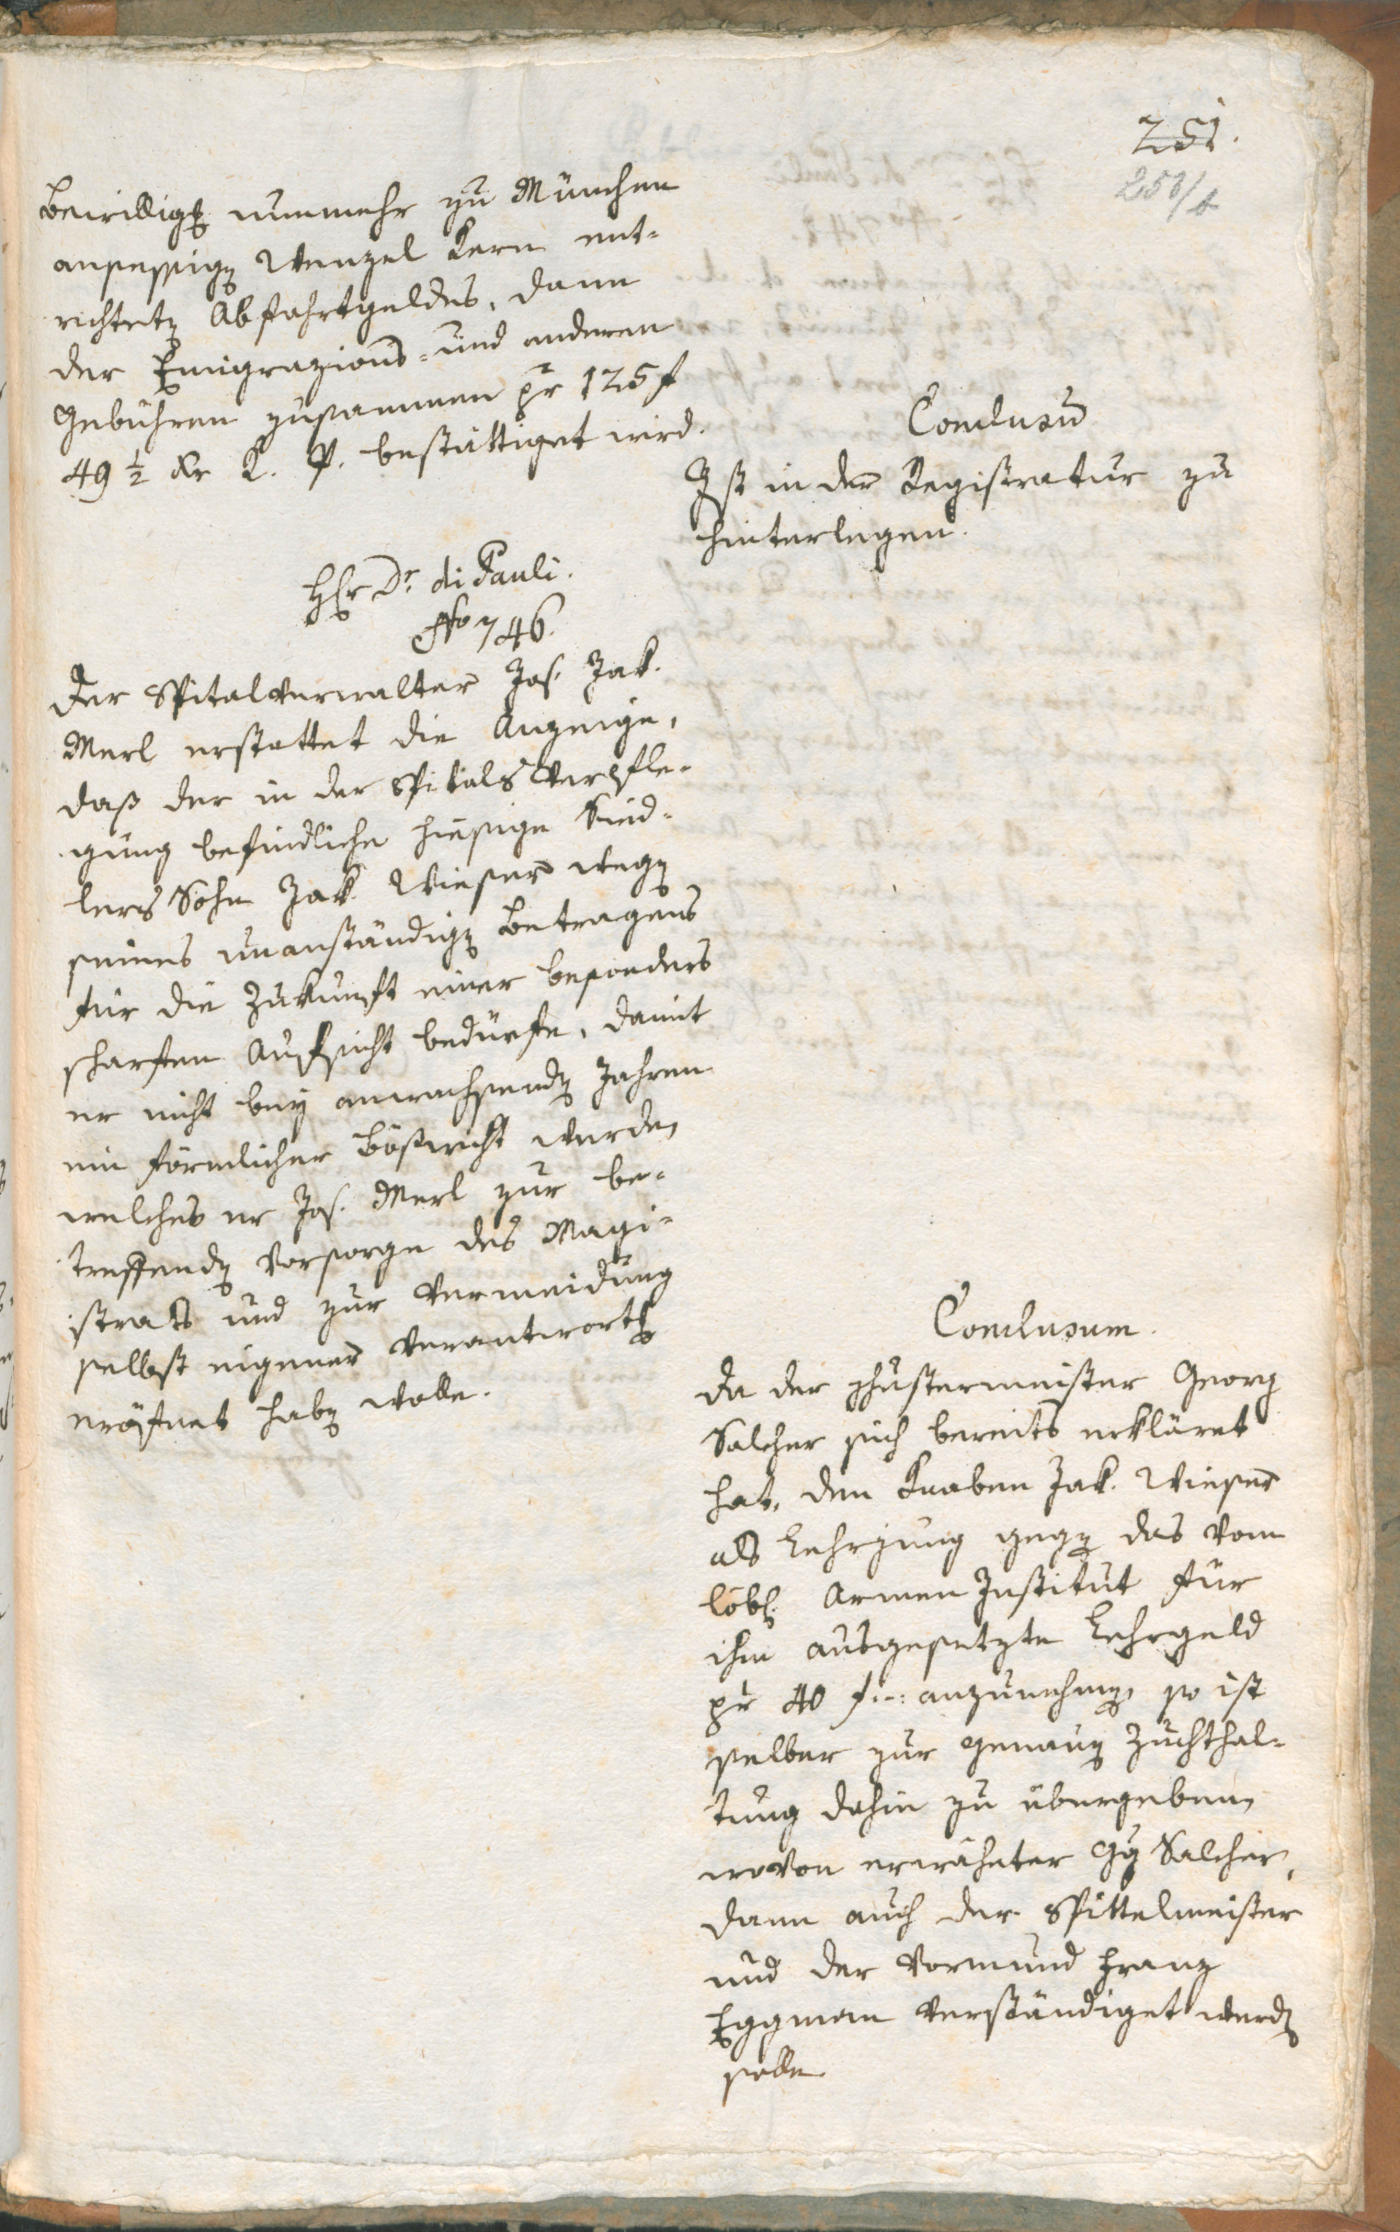 251.
250/b
Bewilligt nunmehr zu München
ansessigen Wenzel Kern ent-
richteten Abfahrtgeldes, dann
der Emigrazions- und anderen
Gebühren zusammen pr 125 f
49 ½ Kr R. W. bestättiget wird.
Conclusum
Ist in der Registratur zu
hinterlegen.
Herr Dr. di Pauli.
No 746.
Der Spitalverwalter Jos. Jak.
Merl erstattet die Anzeige,
daß der in der Spitals Verpfle-
gung befindliche hiesige Sind-
lers Sohn Jak. Wieser wegen
seines unanständigen Betragens
für die Zukunft einer besonders
scharfen Aufsicht bedürfe, damit
er nicht bey anwachsenden Jahren
ein förmlicher Bößwicht werde,
welches er Jos. Merl zur be-
treffenden Vorsorge des Magi-
strats und zur Vermeidung
selbst eigener Verantwortung
eröfnet haben wolle.
Conclusum.
Da der Schustermeister Georg
Salcher sich bereits erkläret
hat, den Knaben Jak. Wieser
als Lehrjung gegen das vom
löbl. Armen Institut für
ihn ausgesetzte Lehrgeld
pr 40 f -: anzunehmen, so ist
selber zur genauen Zuchthal-
tung dahin zu übergeben,
wovon erwähnter Gg Salcher,
dann auch der Spittelmeister
und der Vormund Franz
Eggman verständiget werden
solle.